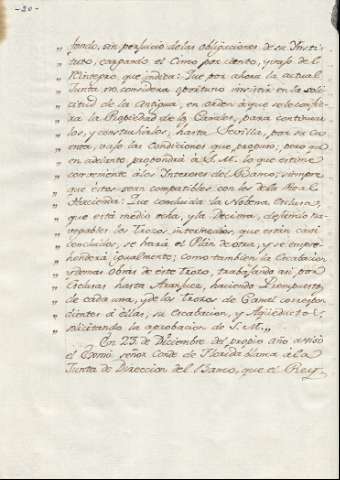 -20-
„ fondo, sin perjuicio de las obligaciones de su Insti-
„ tuto, cargando el Cinco por ciento, y vajo de el
„ Reintegro que indica: Que por ahora la actual
„ Junta no considera oportuno insistir en la soli-
„ citud de la antigua, en orden á que se le confie-
„ ra la Propiedad de los Canales, para continuar
„ los, y construirlos, hasta Sevilla, por su cu
„ enta, vajo las Condiciones que propuso, pero que
„ en adelante propondrá á S. M. lo que estime
„ conveniente á los Intereses del Banco; siempre
„ que éstos sean compatibles con los de la Real
„ Hacienda: Que concluida la Novena Esclusa,
„ que está medio echa, y la Decima, dejando na-
„ vegables los Trozos intermedios, que están casi
„ concluidos, se hará el Plan de otra, y se empre-
„ henderá igualmente; como tambien la Excabacion
„ y demas Obras de este Trozo, trabajando asi por
„ Esclusas hasta Aranjuez, haciendo Presupuesto
„ de cada una, y de los Trozos de Canal correspon
„ dientes á ellas, su Excabacion, y Aqüeducto s
„ solicitando la aprobacion de S. M. „
En 25 de Diciembre del propio año avisó
el Exmô. señor Conde de Floridablanca á la
Junta de Direccion del Banco, que el Rey